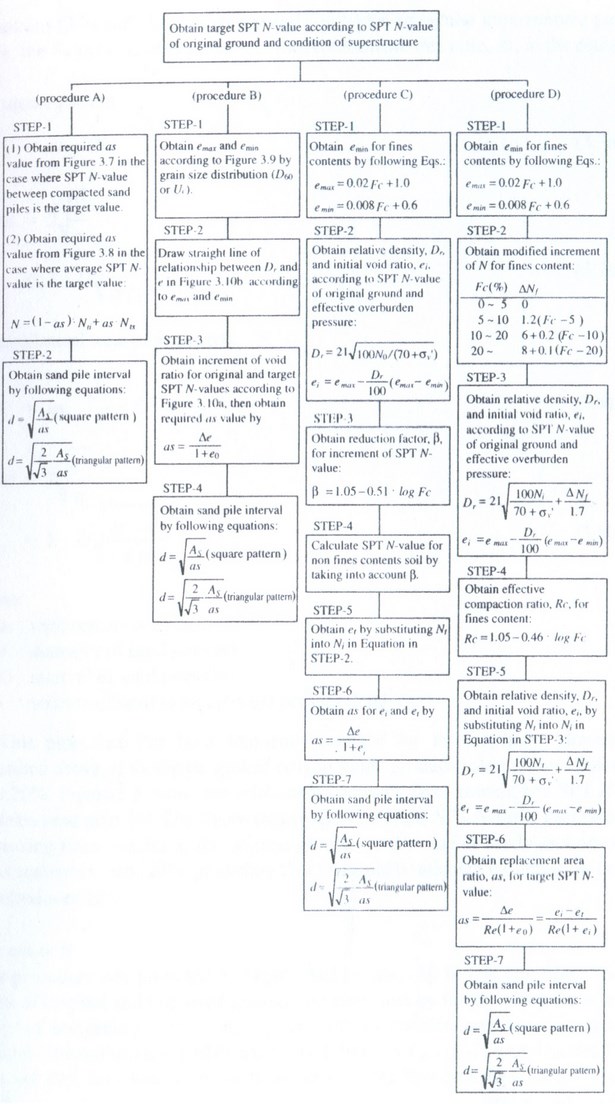 Obtain target SPT N-value according to SPT N-value
of original ground and condition of superstructure
(procedure A)
STEP-1
(1) Obtain required as
value from Figure 3.7 in the
case where SPT N-value
between compacted sand
piles is the target value.
(2) Obtain required as
value from Figure 3.8 in the
case where average SPT N-
value is the target value:
N = (1 − as)· Nn + as Nts
STEP-2
Obtain sand pile interval
by following equations:
d = √(As/as) (square pattern)
d = √(2/√3 As/as) (triangular pattern)
(procedure B)
STEP-1
Obtain emax and emin
according to Figure 3.9 by
grain size distribution (D60
or Uc).
STEP-2
Draw straight line of
relationship between Dr and
e in Figure 3.10b according
to emax and emin
STEP-3
Obtain increment of void
ratio for original and target
SPT N-values according to
Figure 3.10a, then obtain
required as value by
as = Δe/(1 + e0)
STEP-4
Obtain sand pile interval
by following equations:
d = √(As/as) (square pattern)
d = √(2/√3 As/as) (triangular pattern)
(procedure C)
STEP-1
Obtain emin for fines
contents by following Eqs.:
emax = 0.02 Fc + 1.0
emin = 0.008 Fc + 0.6
STEP-2
Obtain relative density, Dr,
and initial void ratio, ei,
according to SPT N-value
of original ground and
effective overburden
pressure:
Dr = 21√(100N0/(70+σv'))
ei = emax − Dr/100 (emax − emin)
STEP-3
Obtain reduction factor, β,
for increment of SPT N-
value:
β = 1.05−0.51 · log Fc
STEP-4
Calculate SPT N-value for
non fines contents soil by
taking into account β.
STEP-5
Obtain et by substituting Nt
into Ni in Equation in
STEP-2.
STEP-6
Obtain as for ei and et by
as = Δe/(1 + ei)
STEP-7
Obtain sand pile interval
by following equations:
d = √(As/as) (square pattern)
d = √(2/√3 As/as) (triangular pattern)
(procedure D)
STEP-1
Obtain emin for fines
contents by following Eqs.:
emax = 0.02 Fc + 1.0
emin = 0.008 Fc + 0.6
STEP-2
Obtain modified increment
of N for fines content:
Fc(%) ΔNf
0 ~ 5 0
5 ~ 10 1.2(Fc − 5)
10 ~ 20 6+0.2 (Fc −10)
20 ~ 8+0.1 (Fc −20)
STEP-3
Obtain relative density, Dr,
and initial void ratio, ei,
according to SPT N-value
of original ground and
effective overburden
pressure:
Dr = 21√(100Ni/(70 + σv') + ΔNf/1.7)
ei = emax − Dr/100 (emax − emin)
STEP-4
Obtain effective
compaction ratio, Rc, for
fines content:
Rc = 1.05−0.46 · log Fc
STEP-5
Obtain relative density, Dr,
and initial void ratio, et, by
substituting Nt into Ni in
Equation in STEP-3:
Dr = 21√(100Nt/(70 + σv') + ΔNf/1.7)
et = emax − Dr/100 (emax − emin)
STEP-6
Obtain replacement area
ratio, as, for target SPT N-
value:
as = Δe/(Re(1+e0)) = (ei − et)/(Re(1 + ei))
STEP-7
Obtain sand pile interval
by following equations:
d = √(As/as) (square pattern)
d = √(2/√3 As/as) (triangular pattern)